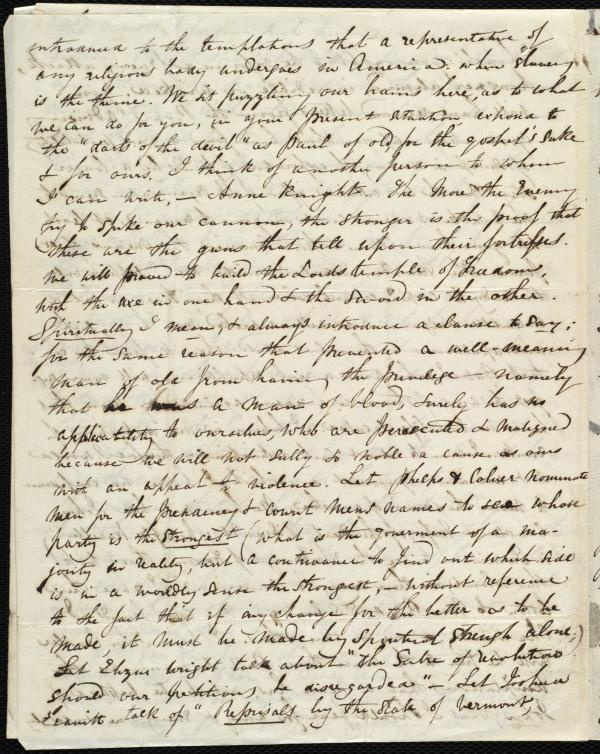 introduced to the temptations that a representative of
any religious body undergoes in America: when slavery
is the theme. We sit puzzling our brains here, as to what
we can do for you, in your present situation exposed to
the "darts of the devil" as Paul of old for the gospel's sake
& for ours. I think of another person to whom
I can write, — Anne Knight. The more the Enemy
try to spike our cannon, the stronger is the proof that
these are the guns that tell upon their fortresses.
We will proceed to build the Lords temple of Freedom,
with the axe in one hand & the sword in the other.
Spiritually I mean, & always introduce a clause to say;
for the same reason that prevented a well-meaning
man of old from having the privilege — namely
that he was a man of blood, surely has no
applicability to ourselves, who are persecuted & maligned
because we will not sully so noble a cause as ours
with an appeal to violence. Let Phelps & Colver nominate
men for the Presidency & count mens names to see whose
party is the strongest (what is the goverment of a ma-
jority in reality, but a contrivance to find out which side
is in a worldly sense the strongest, — without reference
to the fact that if any change for the better is to be
made, it must be made by spiritual strength alone,)
Let Elizur Wright talk about "the Sabre of revolution
should our petitions be disregarded" — Let Joshua
Leavitt talk of "Reprisals by the State of Vermont,